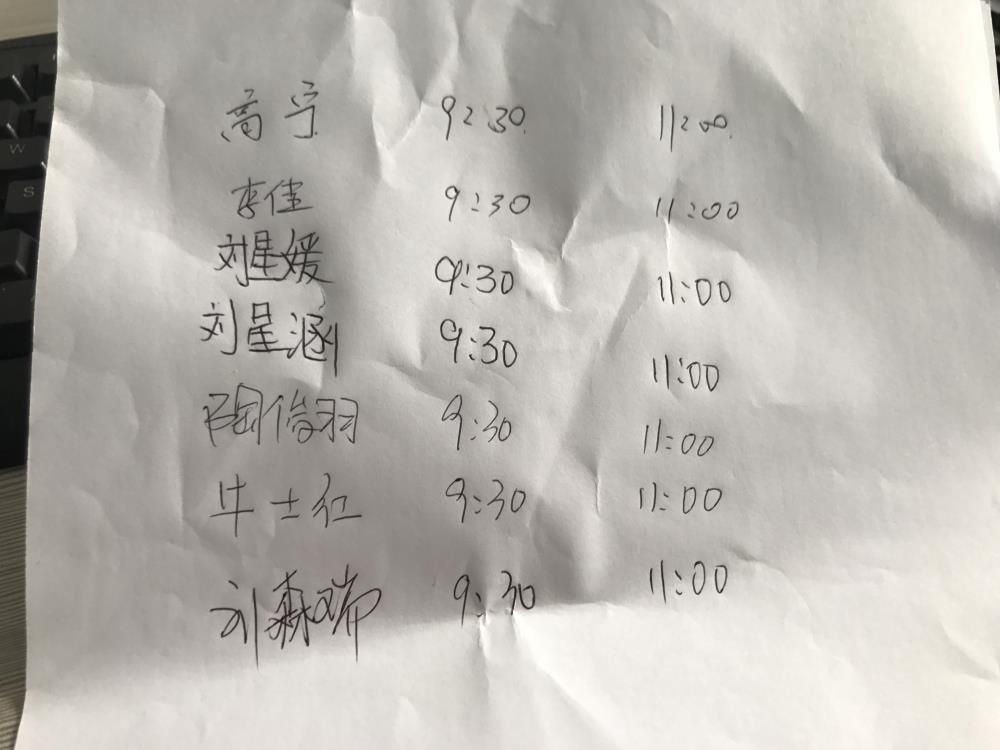 高宁 9:30 11:00
李佳 9:30 11:00
刘星媛 9:30 11:00
刘星涵 9:30 11:00
陶俊羽 9:30 11:00
牛士红 9:30 11:00
刘森瑞 9:30 11:00